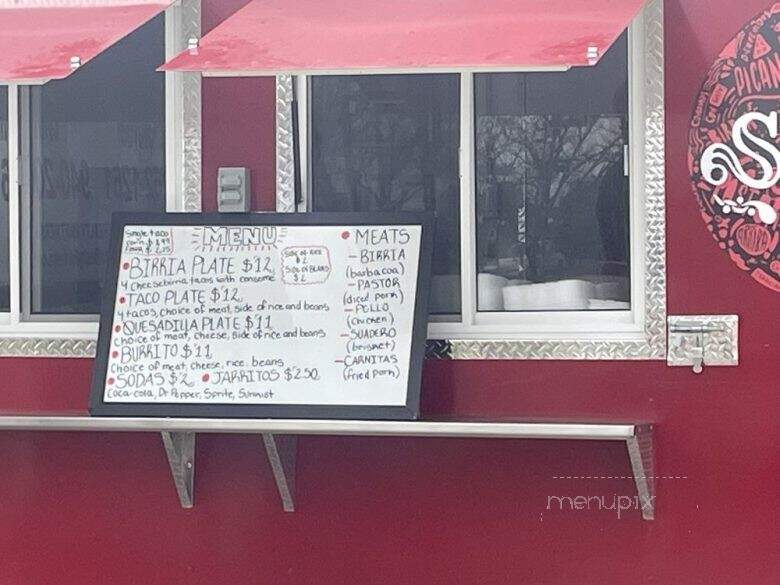 Single taco
corn $1.99
MENU
BIRRIA PLATE $12
4 cheesebirria tacos with consome
side of rice
$2
side of BEANS
$2
TACO PLATE $12
4 tacos, choice of meat, side of rice and beans
QUESADILLA PLATE $11
choice of meat, cheese, side of rice and beans
BURRITO $11
choice of meat, cheese, rice, beans
SODAS $2
JARRITOS $2.50
coca-cola, Dr Pepper, Sprite, Sunkist
MEATS
- BIRRIA
(barbacoa)
- PASTOR
(diced pork)
- POLLO
(chicken)
- SUADERO
(brisket)
- CARNITAS
(fried pork)
PICAN
S
menupix